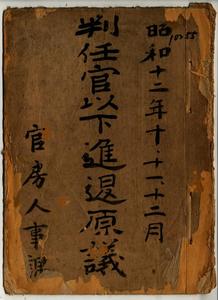 昭和十二年十、十一、十二月
1055
判任官以下進退原議
官房人事課